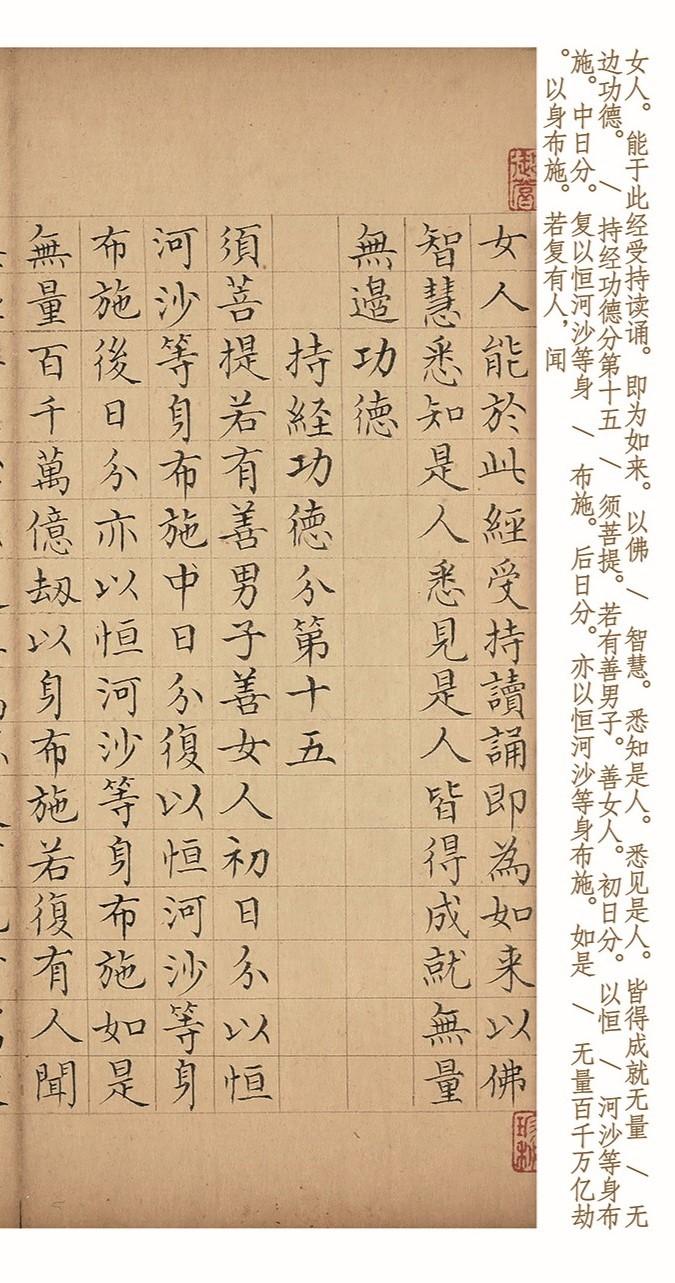 女人。能于此经受持读诵。即为如来。以佛 / 智慧。悉知是人。悉见是人。皆得成就无量 / 无
边功德。 / 持经功德分第十五 / 须菩提。若有善男子。善女人。初日分。以恒 / 河沙等身布
施。中日分。复以恒河沙等身 / 布施。后日分。亦以恒河沙等身布施。如是 / 无量百千万亿劫
。以身布施。若复有人，闻
女人能於此經受持讀誦即為如来以佛
智慧悉知是人悉見是人皆得成就無量
無邊功徳
持経功徳分第十五
須菩提若有善男子善女人初日分以恒
河沙等身布施中日分復以恒河沙等身
布施後日分亦以恒河沙等身布施如是
無量百千萬億劫以身布施若復有人聞